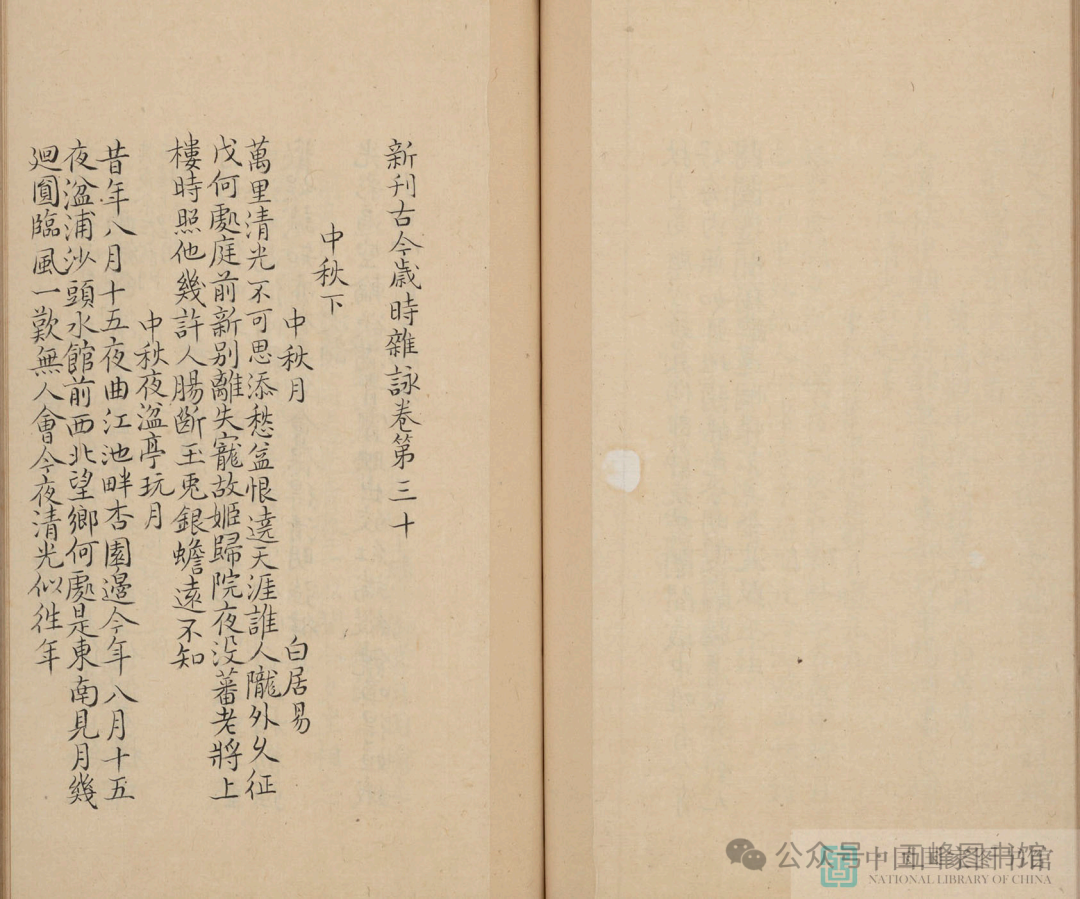 新刊古今歲時雜詠卷第三十
中秋下
中秋月 白居易
萬里清光不可思添愁益恨遶天涯誰人隴外久征
戍何處庭前新别離失寵故姬歸院夜没蕃老將上
樓時照他幾許人腸斷玉兎銀蟾遠不知
中秋夜湓亭玩月
昔年八月十五夜曲江池畔杏園邊今年八月十五
夜湓浦沙頭水館前西北望鄉何處是東南見月幾
廻圓臨風一歎無人會今夜清光似徃年
公众号·西峰图书馆
中国国家图书馆
NATIONAL LIBRARY OF CHINA